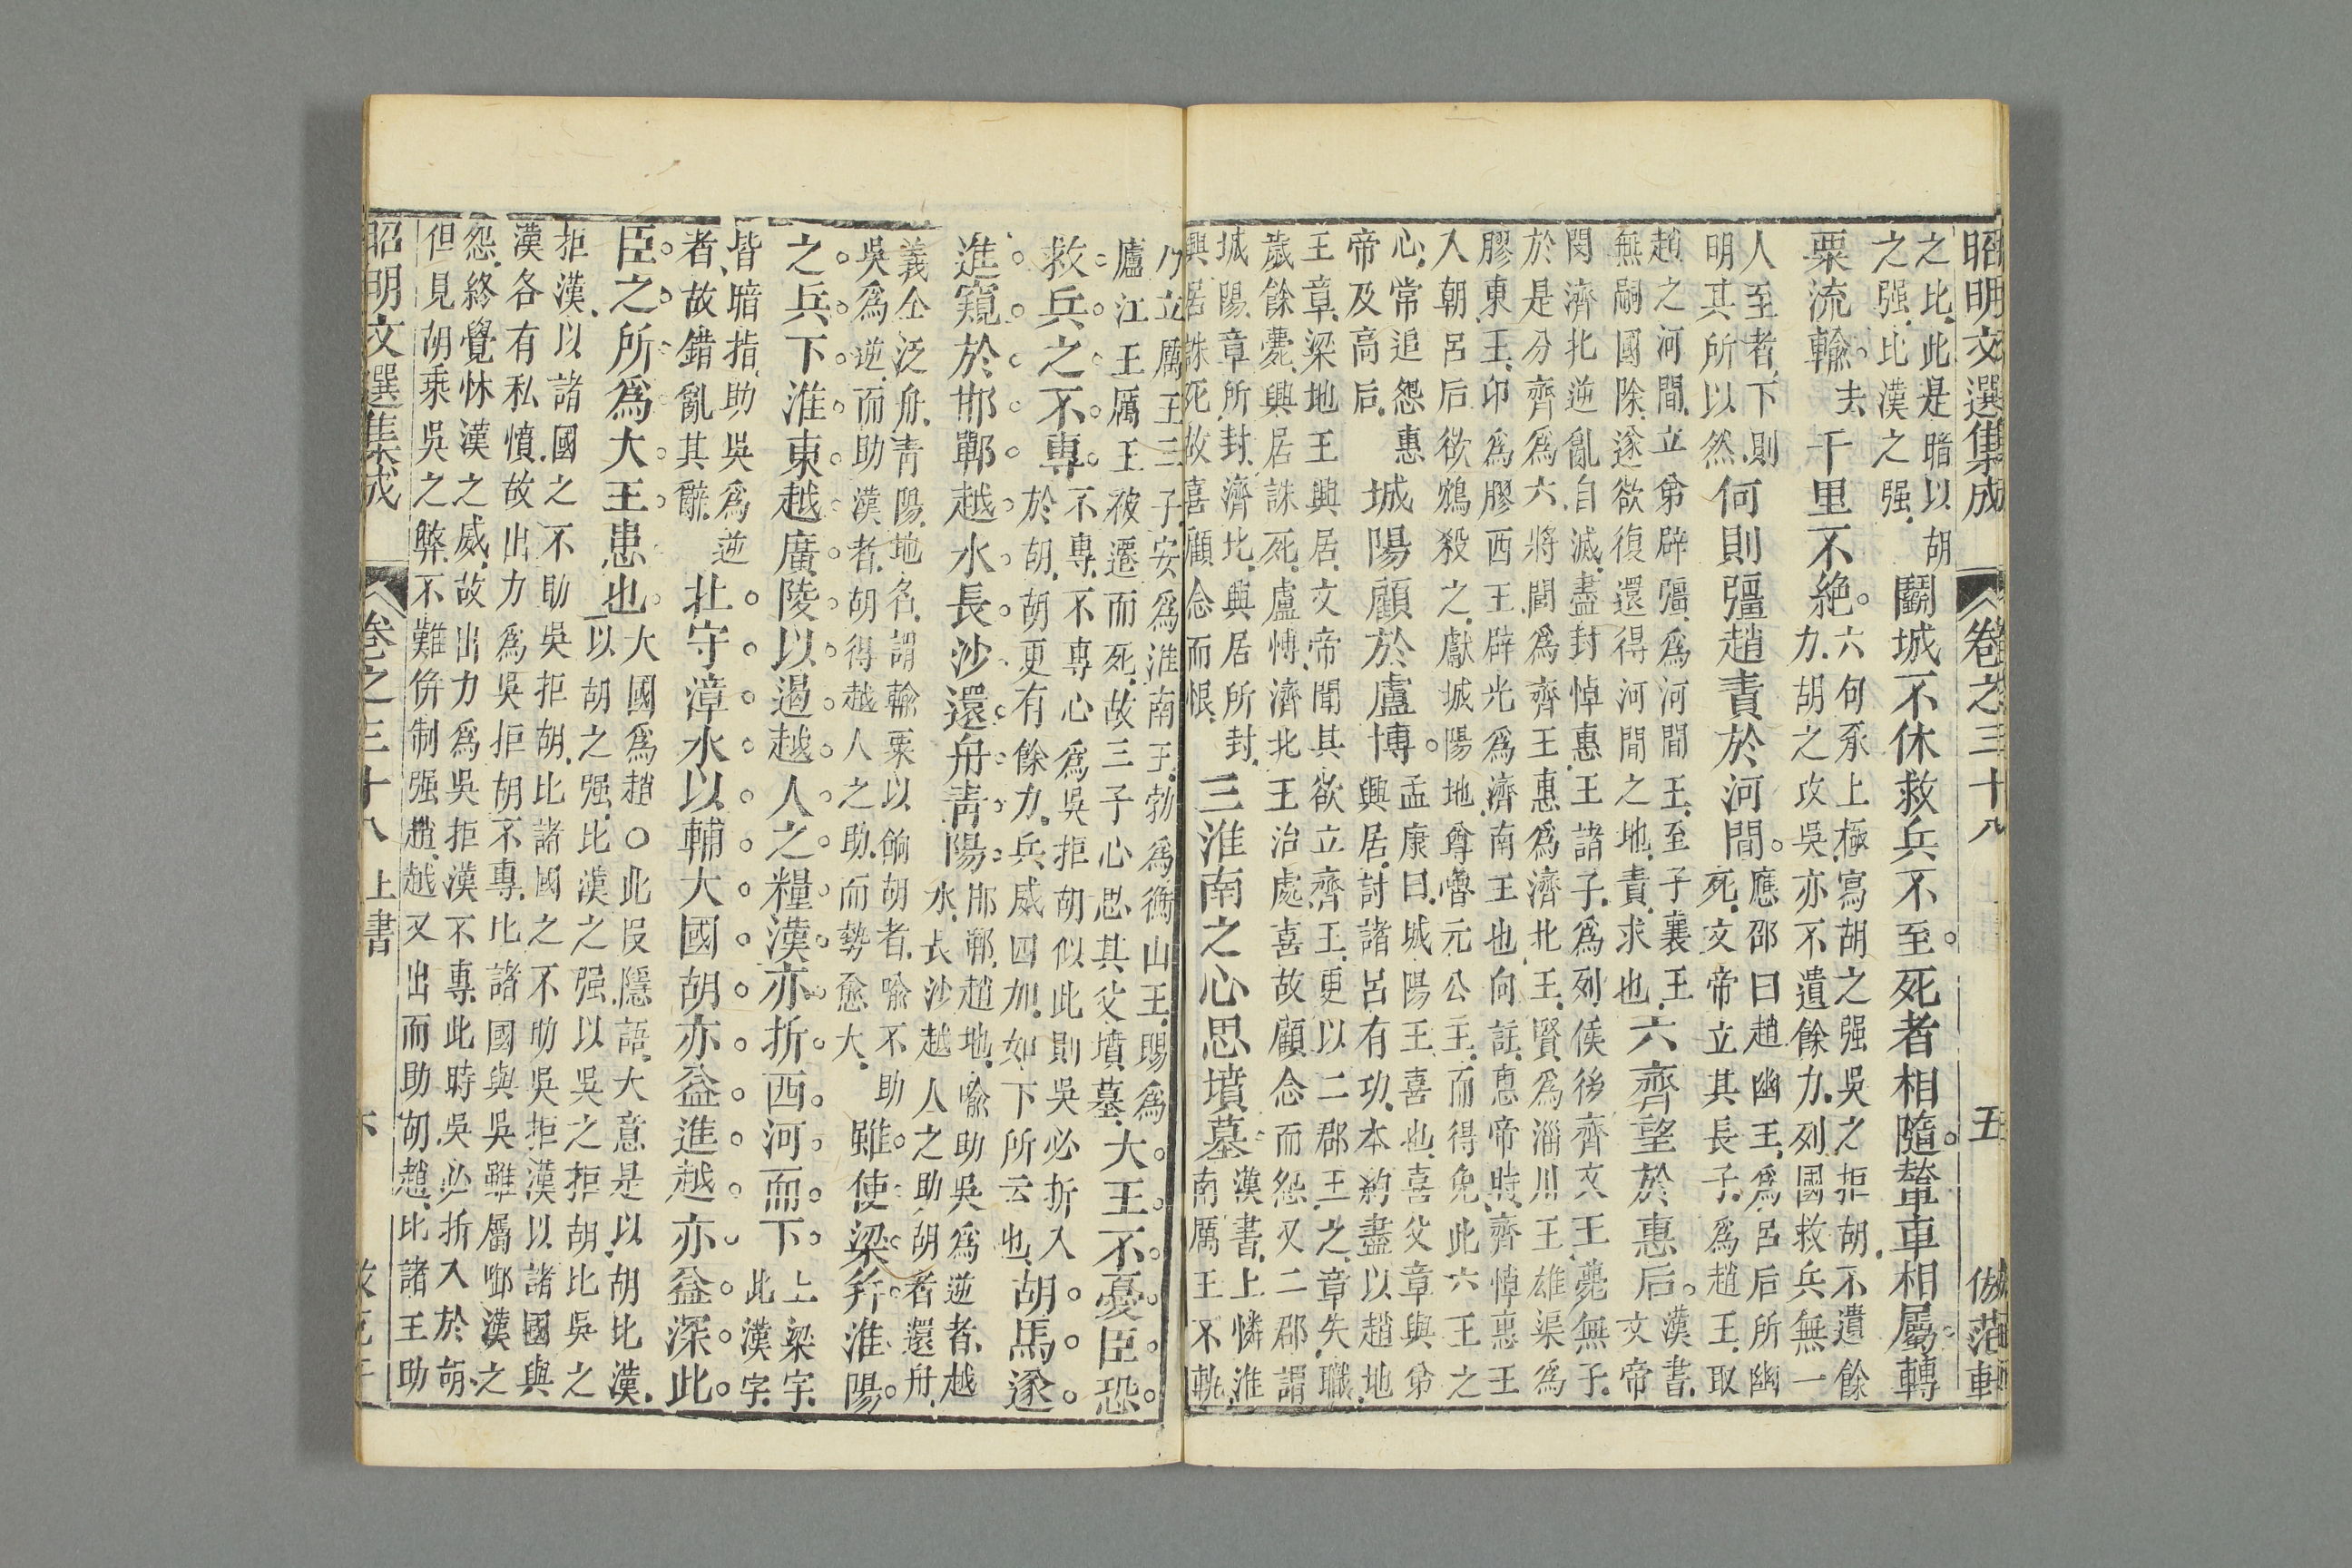 昭明文選集成 卷之三十八 五 倣范軒
之比此是暗以胡
之强比漢之强
鬭城不休救兵不至死者相隨輦車相屬轉
粟流輸 夫 千里不絶
六句承上極寫胡之强吳之拒胡不遺餘
力胡之攻吳亦不遺餘力列國救兵無一
人至者下則
明其所以然
何則彊趙責於河間
應邵曰趙幽王爲呂后所幽
死文帝立其長子爲趙王取
趙之河間立弟辟彊爲河間王至子襄王
無嗣國除遂欲復還得河間之地責求也
六齊望於惠后
漢書
文帝
閔濟北逆亂自滅盡封悼惠王諸子爲列侯後齊文王薨無子
於是分齊爲六將閭爲齊王惠爲濟北王賢爲淄川王雄渠爲
膠東王卬爲膠西王辟光爲濟南王也向註惠帝時齊悼惠王
入朝呂后欲鴆殺之獻城陽地尊魯元公主而得免此六王之
心常追怨惠
帝及高后
城陽顧於盧博
孟康曰城陽王喜也喜父章與弟
興居討諸呂有功本約盡以趙地
王章梁地王興居文帝聞其欲立齊王更以二郡王之章失職
歲餘薨興居誅死盧博濟北王治處喜故顧念而怨又二郡謂
城陽章所封濟北興居所封
興居誅死故喜顧念而恨
三淮南之心思墳墓
漢書上憐淮
南厲王不軌
乃立厲王三子安爲淮南王勃爲衡山王賜爲
廬江王厲王被遷而死故三子心思其父墳墓
大王不憂臣恐
救兵之不專
不專不專心爲吳拒胡似此則吳必折入
於胡胡更有餘力兵威四加如下所云也
胡馬遂
進窺於邯鄲越水長沙還舟青陽
邯鄲趙地喻助吳爲逆者越
水長沙越人之助胡者還舟
義仝泛舟青陽地名謂輸粟以餉胡者喻不助
吳爲逆而助漢者胡得越人之助而勢愈大
雖使梁幷淮陽
之兵下淮東越廣陵以遏越人之糧漢亦折西河而下
上梁字
此漢字
皆暗指助吳爲逆
者故錯亂其辭
北守漳水以輔大國胡亦益進越亦益深此
臣之所爲大王患也
大國爲趙〇此段隱語大意是以胡比漢
以胡之强比漢之强以吳之拒胡比吳之
拒漢以諸國之不助吳拒胡比諸國之不助吳拒漢以諸國與
漢各有私憤故出力爲吳拒胡不專比諸國與吳雖屬啣漢之
怨終覺怵漢之威故出力爲吳拒漢不專此時吳必折入於胡
但見胡乘吳之弊不難倂制强趙越又出而助胡趙比諸王助
昭明文選集成 卷之三十八 上書